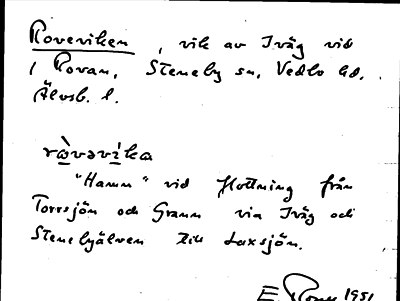 Roveviken, vik av Iväg vid
Rovan, Steneby sn, Vedbo hd,
Älvsb. l.
ràvəvìka
"Hamn" vid flottning från
Torrsjön och Grann via Iväg och
Stenebyälven till Laxsjön.
E. 1951